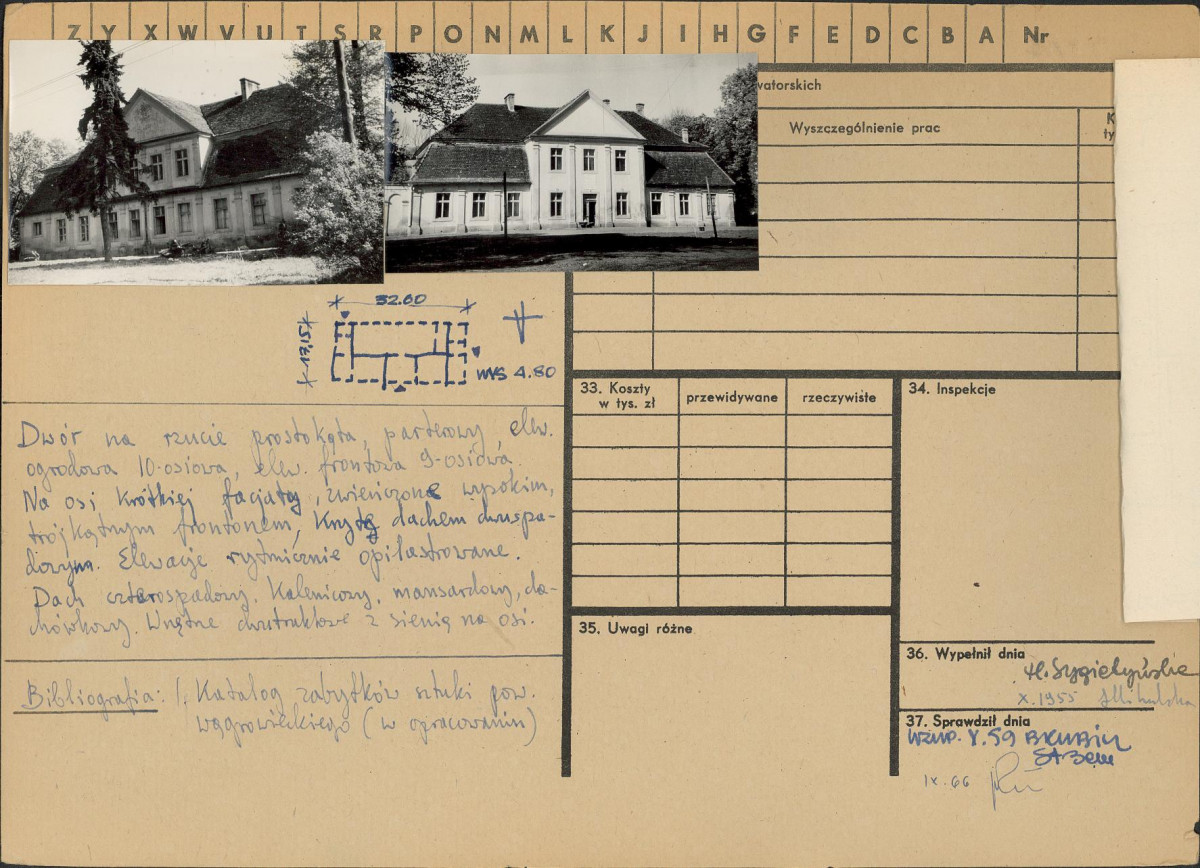 Z Y X W V U T S R P O N M L K J I H G F E D C B A Nr
watorskich
Wyszczególnienie prac
K
ty
32.60
13.15
WYS 4.80
Dwór na rzucie prostokąta, parterowy, elew.
ogrodowa 10-osiowa, elew. frontowa 9-osiowa.
Na osi krótkiej facjaty, zwieńczone wysokim,
trójkątnym frontonem, kryte dachem dwuspa-
dowym. Elewacje rytmicznie opilastrowane.
Dach czterospadowy. Kalenicowy, mansardowy, da-
chówkowy. Wnętrze dwutraktowe z sienią na osi.
Bibliografia: 1. Katalog zabytków sztuki pow.
wągrowieckiego (w opracowaniu)
33. Koszty
w tys. zł
przewidywane
rzeczywiste
34. Inspekcje
35. Uwagi różne
36. Wypełnił dnia
H. Sygietyńska
X. 1955
37. Sprawdził dnia
WZUP. X. 59
IX. 66